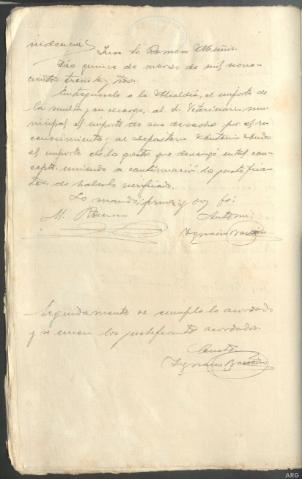 Juez Sr. Roman
Dia quince de marzo de mil nove-
cientos treinta y tres.
Entreguese a la Alcaldia, el importe de
la multa y su recargo, al Sr. Veterinario mu-
nicipal el importe de sus derechos por el re-
conocimiento y al depositario
el importe de los gastos que devengó en tal con-
cepto, uniendo a continuación los justifica-
tes de haberlo verificado.
Lo mandó, firma y doy fe:
M. Roman Antemi:
Ygnacio
Seguidamente se cumple lo acordado
y se unen los justificantes acordados.
Ygnacio
ARG